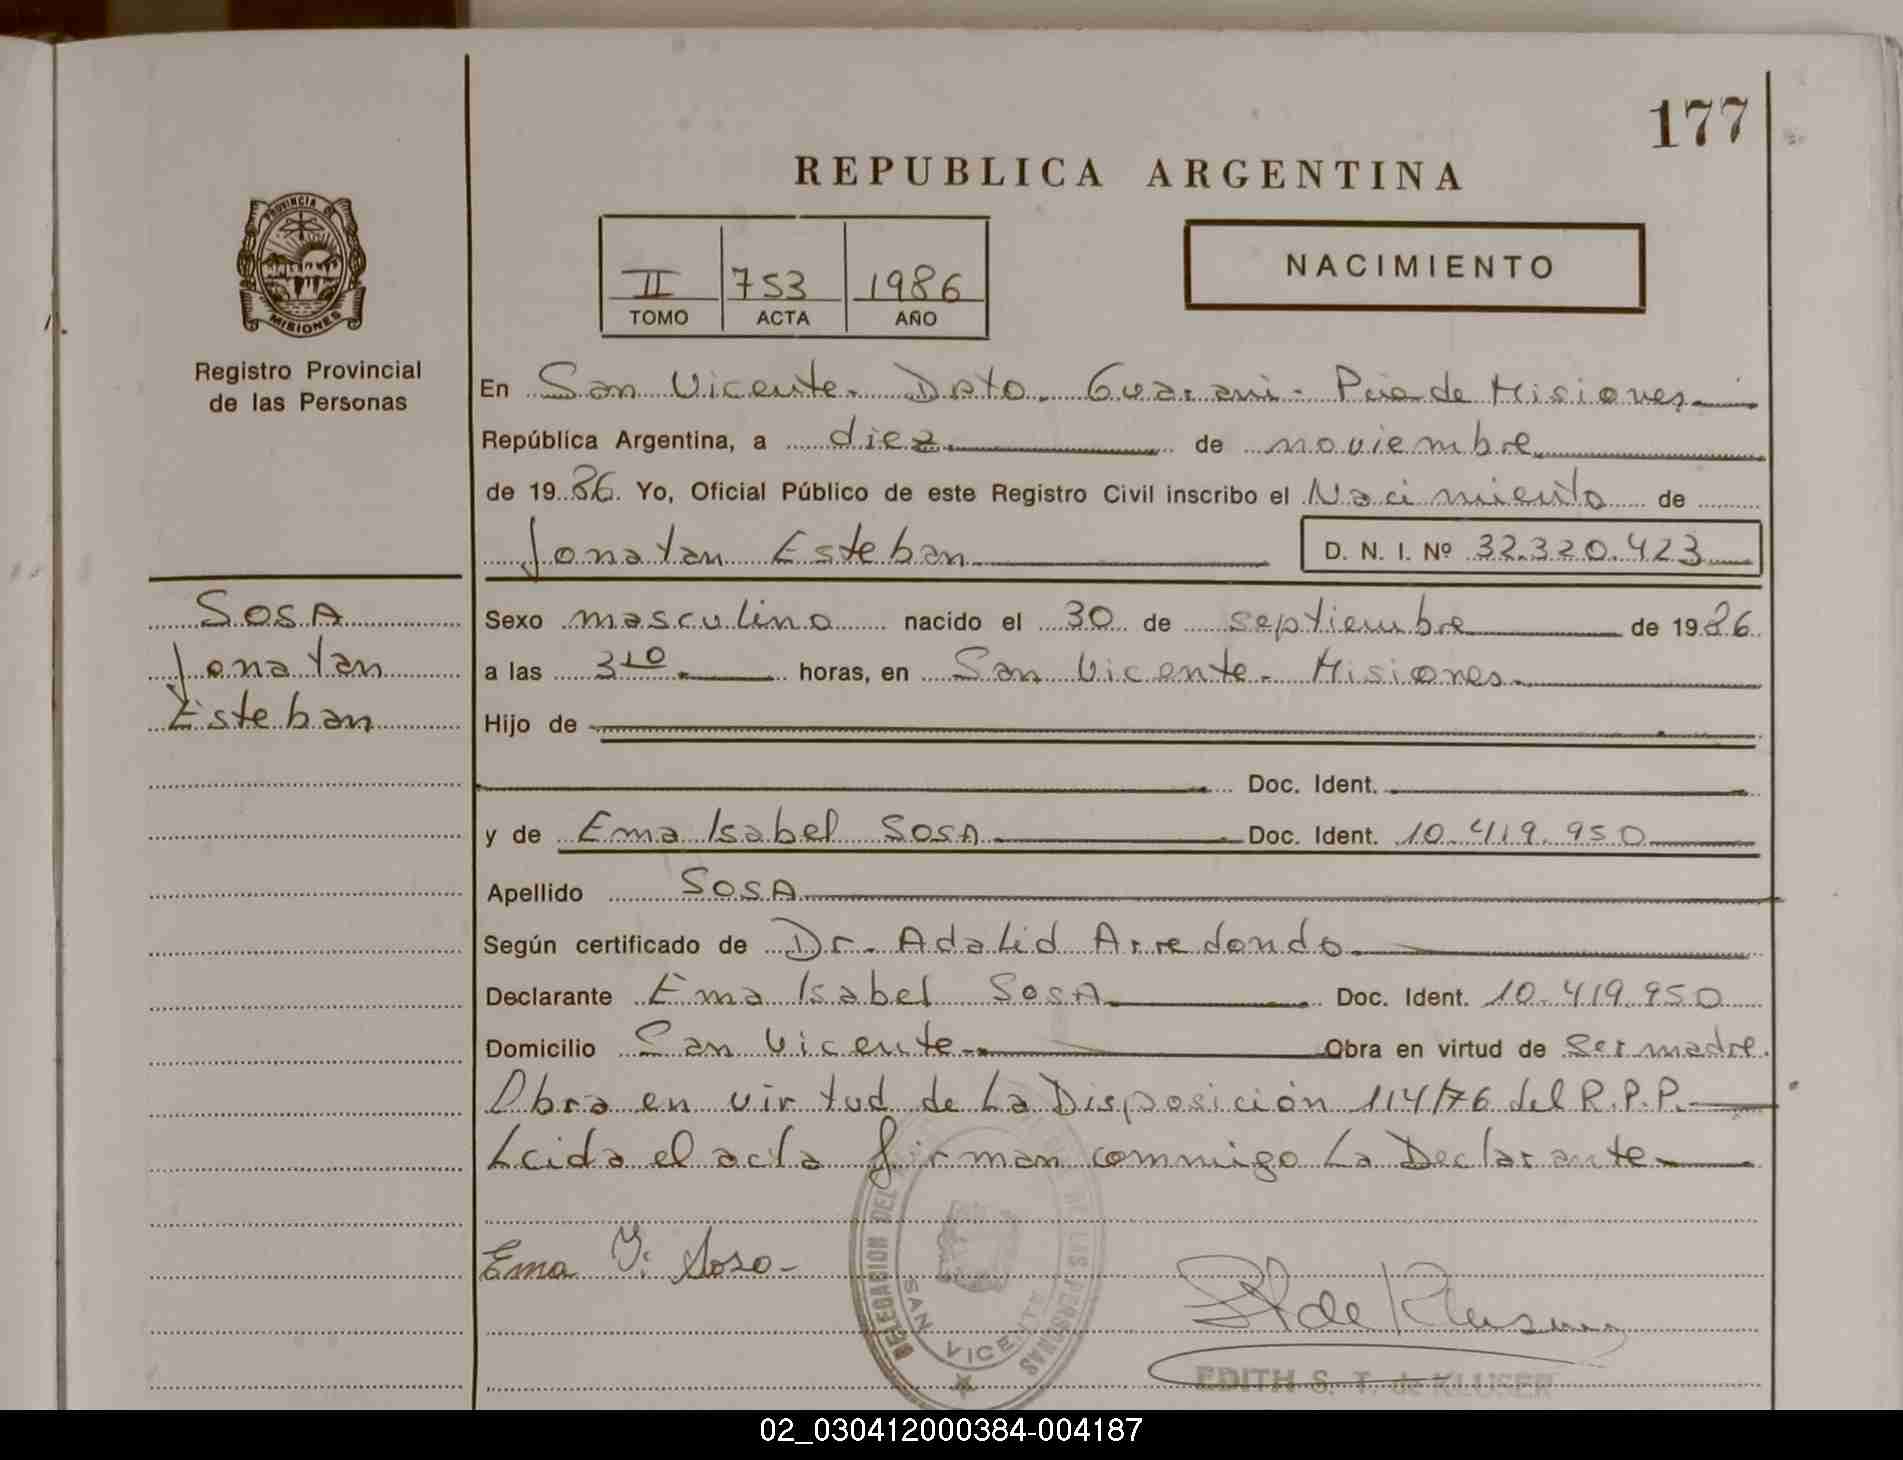 177
REPUBLICA ARGENTINA
PROVINCIA DE
MISIONES
II 753 1986
TOMO ACTA AÑO
NACIMIENTO
Registro Provincial
de las Personas
En San Vicente. Dpto. Guarani - Pcia de Misiones
República Argentina, a diez de noviembre
de 1986. Yo, Oficial Público de este Registro Civil inscribo el Nacimiento de
Jonatan Esteban D. N. I. Nº 32.320.423
SOSA
Jonatan
Esteban
Sexo masculino nacido el 30 de septiembre de 1986
a las 3 10 horas, en San Vicente - Misiones
Hijo de
Doc. Ident.
y de Ema Isabel SOSA Doc. Ident. 10.419.950
Apellido SOSA
Según certificado de Dr. Adalid Arredondo
Declarante Ema Isabel SOSA Doc. Ident. 10.419.950
Domicilio San Vicente Obra en virtud de Ser madre.
Obra en virtud de La Disposición 114/76 del R.P.P.
Leida el acta firman commigo La Declarante
Ema I. Sosa-
DELEGACION DEL DE LAS PERSONAS
SAN VICENTE
EDITH S. T. de KLUSER
02_030412000384-004187